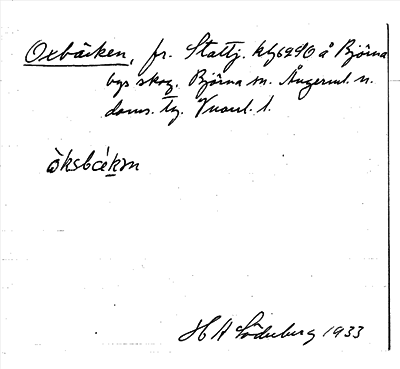 Oxbäcken, fr. Stattj. kbg 6290 å Björna
bys skog. Björna sn. Ångerml. n.
doms. tg. Vnorrl. l.
òksbœ́kɷn
H A Söderberg 1933